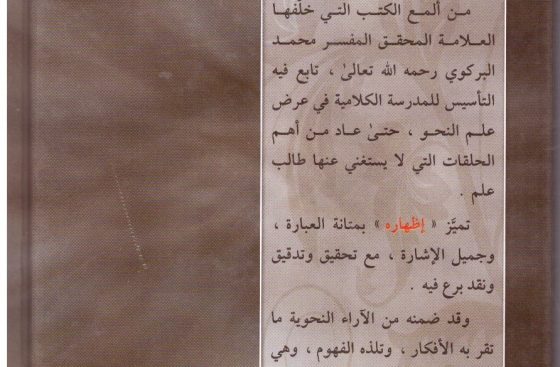 من ألمع الكتب التي خلّفها
العلامة المحقق المفسر محمد
البركوي رحمه الله تعالىٰ ، تابع فيه
التأسيس للمدرسة الكلامية في عرض
علم النحو ، حتىٰ عاد من أهم
الحلقات التي لا يستغني عنها طالب
علم .
تميَّز « إظهاره » بمتانة العبارة ،
وجميل الإشارة ، مع تحقيق وتدقيق
ونقد برع فيه .
وقد ضمنه من الآراء النحوية ما
تقر به الأفكار ، وتلذه الفهوم ، وهي